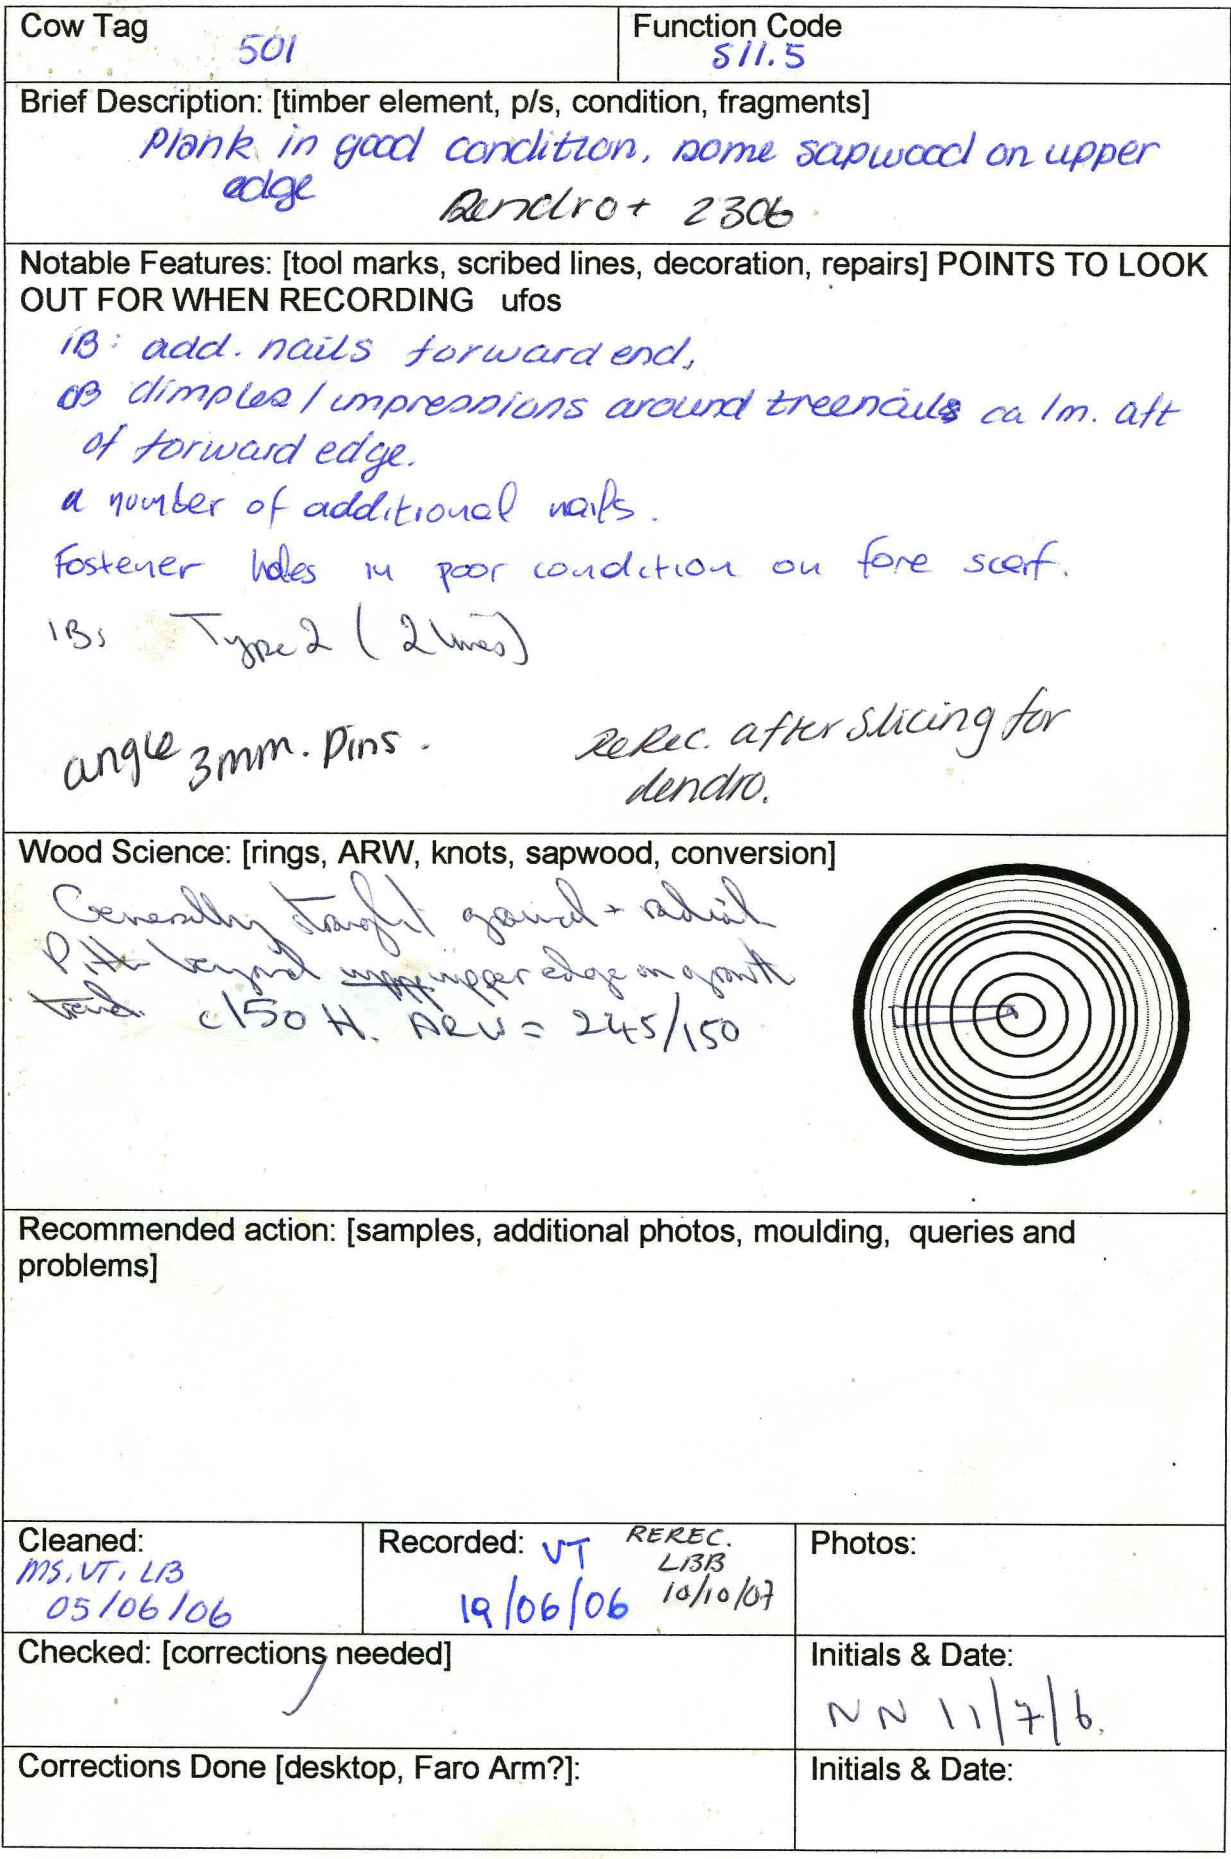 Cow Tag
501
Function Code
S11.5
Brief Description: [timber element, p/s, condition, fragments]
Plank in good condition, some sapwood on upper
edge
Dendro+ 2306
Notable Features: [tool marks, scribed lines, decoration, repairs] POINTS TO LOOK
OUT FOR WHEN RECORDING ufos
IB: add. nails forward end,
OB dimples / impressions around treenails ca 1m. aft
of forward edge.
a number of additional nails.
Fostener holes in poor condition on fore scarf.
IB: Type 2 (2 lines)
angle 3mm. Pins.
ReRec. after slicing for
dendro.
Wood Science: [rings, ARW, knots, sapwood, conversion]
Generally straight grained + radial
Pith beyond upper edge on growth
trend. c150 H. ARW = 245/150
Recommended action: [samples, additional photos, moulding, queries and
problems]
Cleaned:
MS, VT, LB
05/06/06
Recorded: VT
19/06/06
REREC.
LBB
10/10/07
Photos:
Checked: [corrections needed]
Initials & Date:
NN 11/7/6.
Corrections Done [desktop, Faro Arm?]:
Initials & Date: